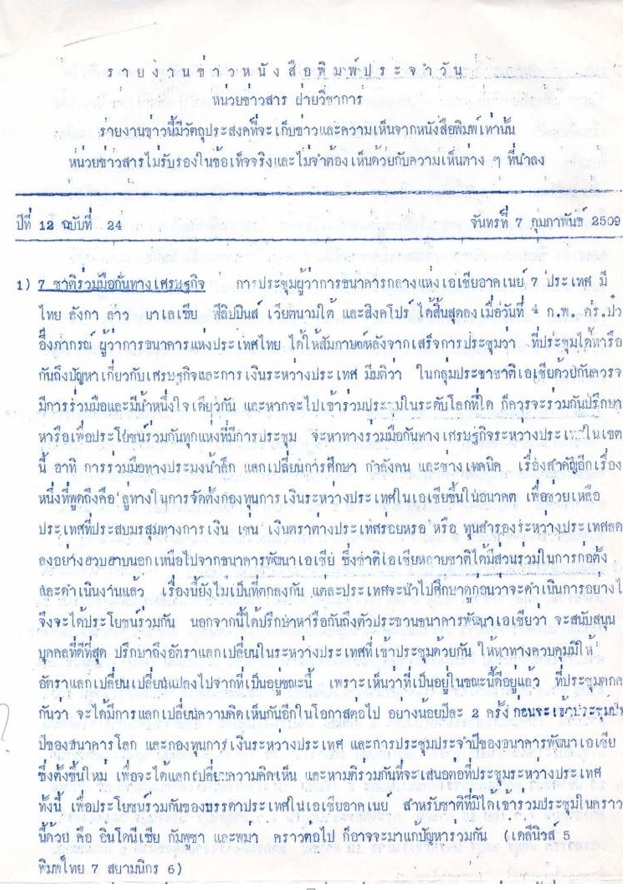 รายงานข่าวหนังสือพิมพ์ประจำวัน
หน่วยข่าวสาร ฝ่ายวิชาการ
รายงานข่าวนี้มีวัตถุประสงค์ที่จะเก็บข่าวและความเห็นจากหนังสือพิมพ์เท่านั้น
หน่วยข่าวสารไม่รับรองในข้อเท็จจริงและไม่จำต้องเห็นด้วยกับความเห็นต่าง ๆ ที่นำลง
ปีที่ 12 ฉบับที่ 24 จันทร์ที่ 7 กุมภาพันธ์ 2509
1) 7 ชาติร่วมมือกันทางเศรษฐกิจ การประชุมผู้ว่าการธนาคารกลางแห่งเอเชียอาคเนย์ 7 ประเทศ มี
ไทย ลังกา ลาว มาเลเซีย ฟิลิปปินส์ เวียตนามใต้ และสิงคโปร์ ได้สิ้นสุดลงเมื่อวันที่ 4 ก.พ. ดร.ป๋วย
อึ๊งภากรณ์ ผู้ว่าการธนาคารแห่งประเทศไทย ได้ให้สัมภาษณ์หลังจากเสร็จการประชุมว่า ที่ประชุมได้หารือ
กันถึงปัญหาเกี่ยวกับเศรษฐกิจและการเงินระหว่างประเทศ มีมติว่า ในกลุ่มประชาชาติเอเชียด้วยกันควรจะ
มีการร่วมมือและมีน้ำหนึ่งใจเดียวกัน และหากจะไปเข้าร่วมประชุมในระดับโลกที่ใด ก็ควรจะร่วมกันปรึกษา
หารือเพื่อประโยชน์ร่วมกันทุกแห่งที่มีการประชุม จะหาทางร่วมมือกันทางเศรษฐกิจระหว่างประเทศในเขต
นี้ อาทิ การร่วมมือทางประมงน้ำลึก แลกเปลี่ยนการศึกษา กำลังคน และช่างเทคนิค เรื่องสำคัญอีกเรื่อง
หนึ่งที่พูดถึงคือ ลู่ทางในการจัดตั้งกองทุนการเงินระหว่างประเทศในเอเชียขึ้นในอนาคต เพื่อช่วยเหลือ
ประเทศที่ประสบมรสุมทางการเงิน เช่น เงินตราต่างประเทศร่อยหรอ หรือ ทุนสำรองระหว่างประเทศลด
ลงอย่างฮวบฮาบนอกเหนือไปจากธนาคารพัฒนาเอเชีย ซึ่งชาติเอเชียหลายชาติได้มีส่วนร่วมในการก่อตั้ง
และดำเนินงานแล้ว เรื่องนี้ยังไม่เป็นที่ตกลงกัน แต่ละประเทศจะนำไปศึกษาดูก่อนว่าจะดำเนินการอย่างไ
จึงจะได้ประโยชน์ร่วมกัน นอกจากนี้ได้ปรึกษาหารือกันถึงตัวประธานธนาคารพัฒนาเอเชียว่า จะสนับสนุน
บุคคลที่ดีที่สุด ปรึกษาถึงอัตราแลกเปลี่ยนในระหว่างประเทศที่เข้าประชุมด้วยกัน ให้หาทางควบคุมมิให้
อัตราแลกเปลี่ยนเปลี่ยนแปลงไปจากที่เป็นอยู่ขณะนี้ เพราะเห็นว่าที่เป็นอยู่ในขณะนี้ดีอยู่แล้ว ที่ประชุมตกล
กันว่า จะได้มีการแลกเปลี่ยนความคิดเห็นกันอีกในโอกาสต่อไป อย่างน้อยปีละ 2 ครั้ง ก่อนจะเข้าประชุม
ปีของธนาคารโลก และกองทุนการเงินระหว่างประเทศ และการประชุมประจำปีของธนาคารพัฒนาเอเชีย
ซึ่งตั้งขึ้นใหม่ เพื่อจะได้แลกเปลี่ยนความคิดเห็น และหามติร่วมกันที่จะเสนอต่อที่ประชุมระหว่างประเทศ
ทั้งนี้ เพื่อประโยชน์ร่วมกันของบรรดาประเทศในเอเชียอาคเนย์ สำหรับชาติที่มิได้เข้าร่วมประชุมในคราว
นี้ด้วย คือ อินโดนีเซีย กัมพูชา และพม่า คราวต่อไป ก็อาจจะมาแก้ปัญหาร่วมกัน (เดลินิวส์ 5
พิมพ์ไทย 7 สยามนิกร 6)